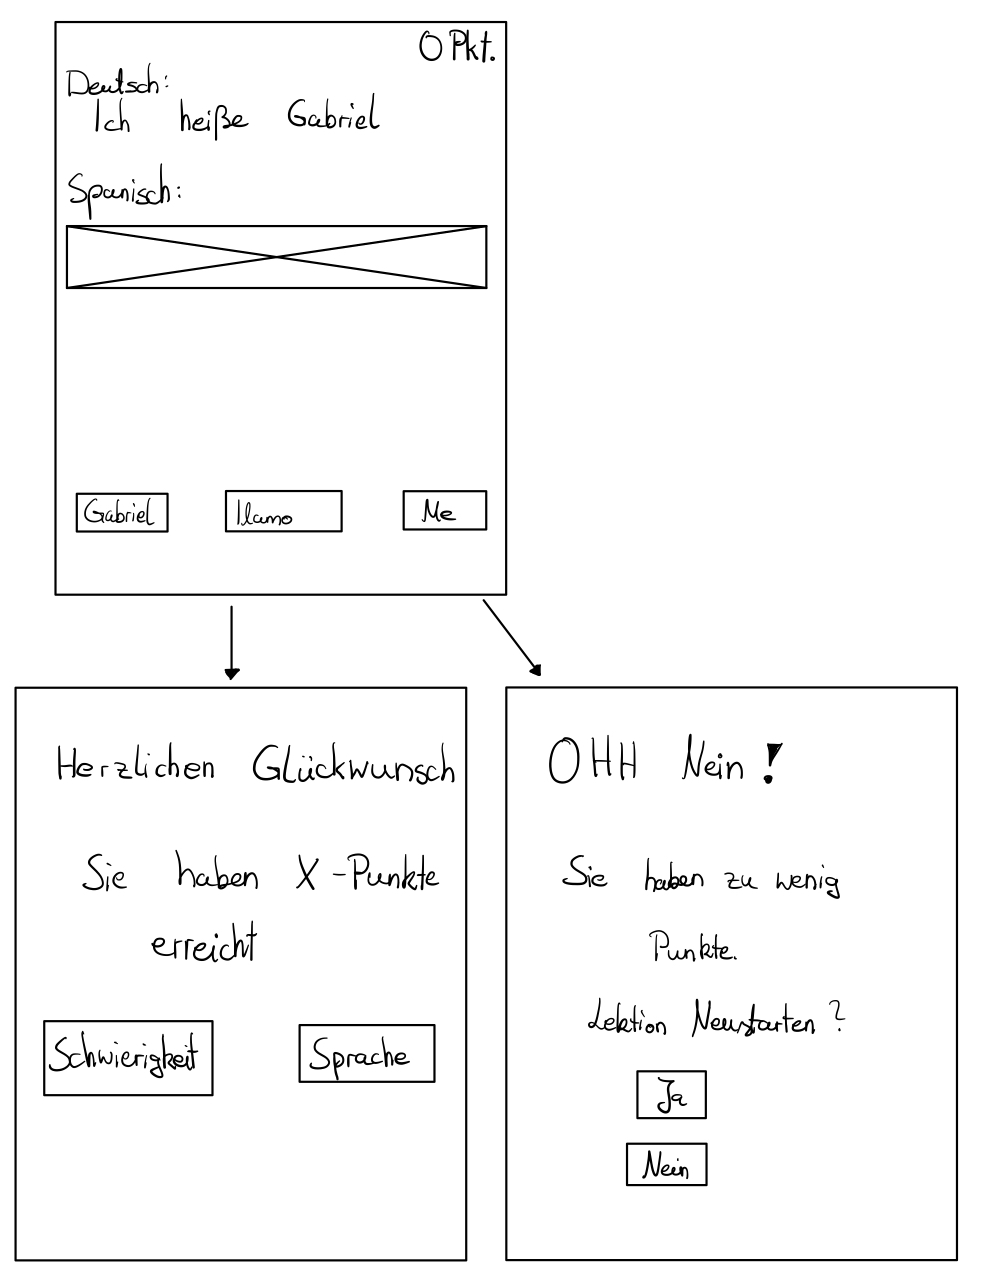 0 Pkt.
Deutsch:
Ich heiße Gabriel
Spanisch:
Gabriel
llamo
Me
Herzlichen Glückwunsch
Sie haben X-Punkte
erreicht
Schwierigkeit
Sprache
OHH Nein!
Sie haben zu wenig
Punkte.
Lektion Neustarten?
Ja
Nein